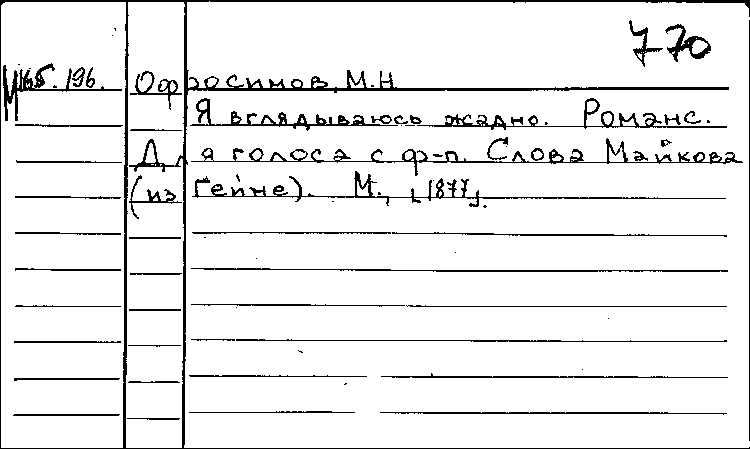 770
М 165.196. Офросимов, М.Н
Я вглядываюсь жадно. Романс.
Для голоса с ф-п. Слова Майкова
(из Гейне). М., [1877].